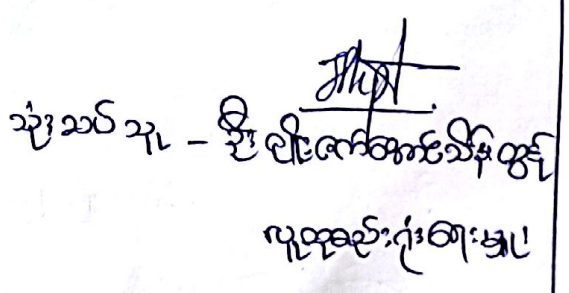 သုံးသပ်သူ - ဦးမျိုးဇော်အောင်သိန်းထွန်း
လူထုစည်းရုံးရေးမှူး